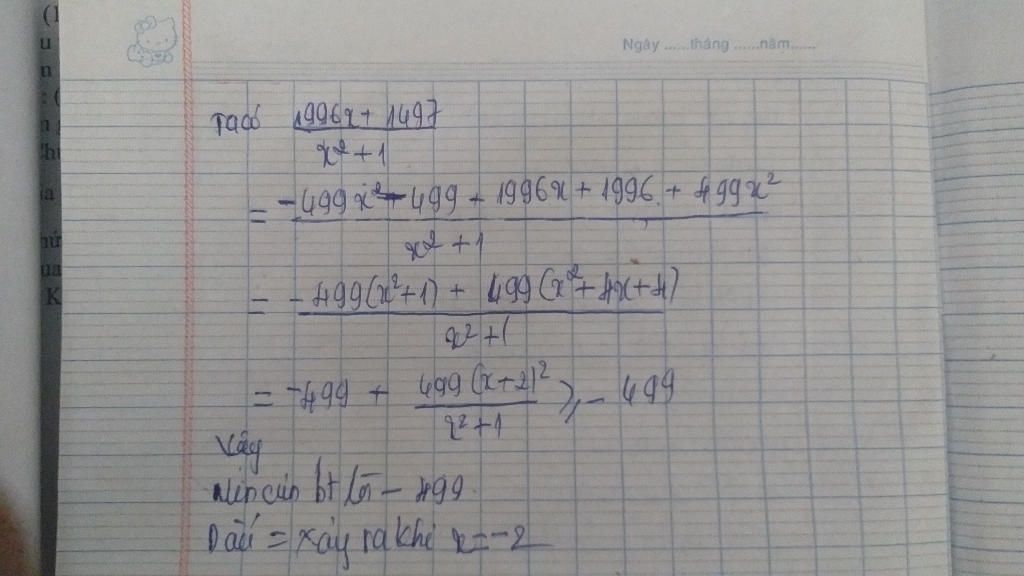 Ngày ......tháng ......năm......
Ta có (1996x + 1497)/(x² + 1)
= (-499x² - 499 + 1996x + 1996 + 499x²)/(x² + 1)
= (-499(x²+1) + 499(x²+4x+4))/(x²+1)
= -499 + (499(x+2)²)/(x²+1) ≥ - 499
Vậy
Min của bt là - 499
Dấu = xảy ra khi x = -2